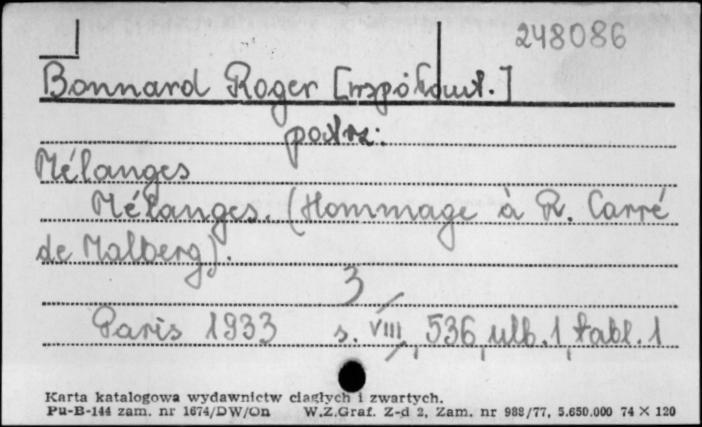 248086
Bonnard Roger [współaut.]
patrz:
Mélanges
Mélanges. (Hommage à R. Carré
de Malberg).
3
Paris 1933 s. VIII, 536, ulb. 1, tabl. 1
Karta katalogowa wydawnictw ciągłych i zwartych.
Pu-B-144 zam. nr 1674/DW/On W.Z.Graf. Z-d 2, Zam. nr 988/77, 5.650.000 74 × 120